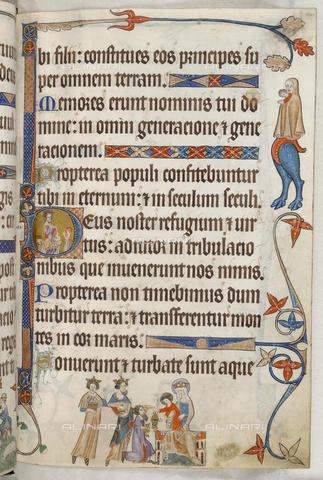 bi filii: constitues eos principes su
per omnem terram.
Memores erunt nominis tui do
mine: in omni generacione & gene
racionem.
Propterea populi confitebuntur
tibi in eternum: & in seculum seculi.
Deus noster refugium & uir
tus: adiutor in tribulacio
nibus que inuenerunt nos nimis.
Propterea non timebimus dum
turbitur terra: & transferentur mon
tes in cor maris.
Sonuerunt & turbate sunt aque
ALINARI
ALINARI